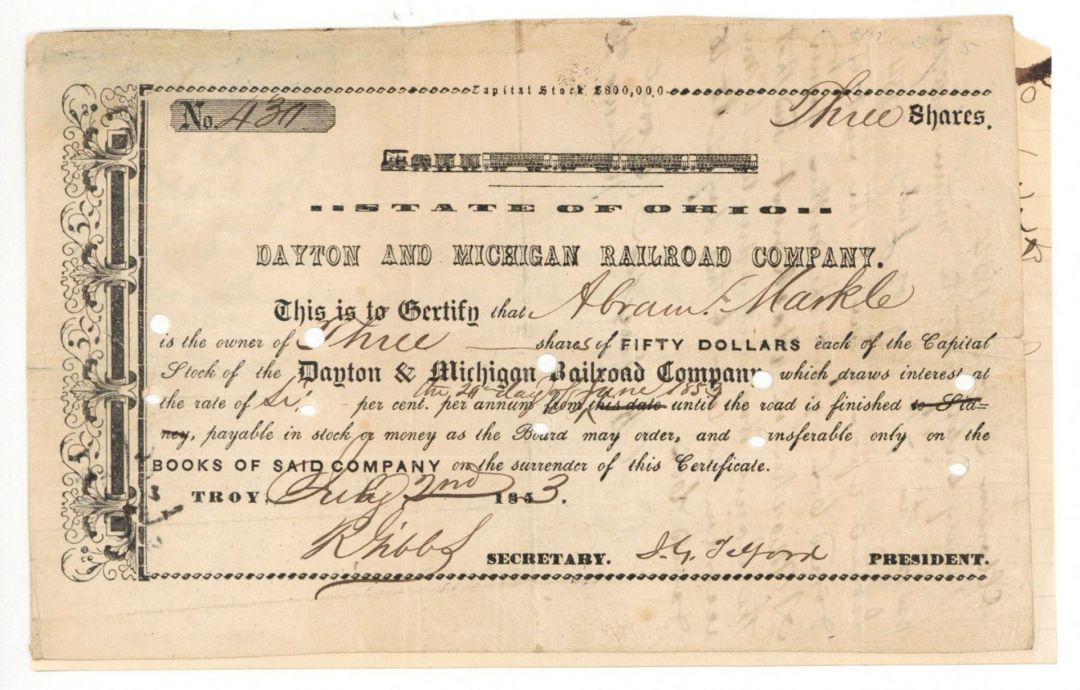 Capital Stock $800,000
No. 431
Three Shares.
STATE OF OHIO
DAYTON AND MICHIGAN RAILROAD COMPANY.
This is to Certify that Abram F. Markle
is the owner of Three shares of FIFTY DOLLARS each of the Capital
Stock of the Dayton & Michigan Railroad Company, which draws interest at
the 20 day of June 1853
the rate of Six per cent. per annum from this date until the road is finished to Sid-
ney, payable in stock or money as the Board may order, and transferable only on the
BOOKS OF SAID COMPANY on the surrender of this Certificate.
TROY, July 2nd 1853.
R Gibbs SECRETARY. J. G. Telford PRESIDENT.